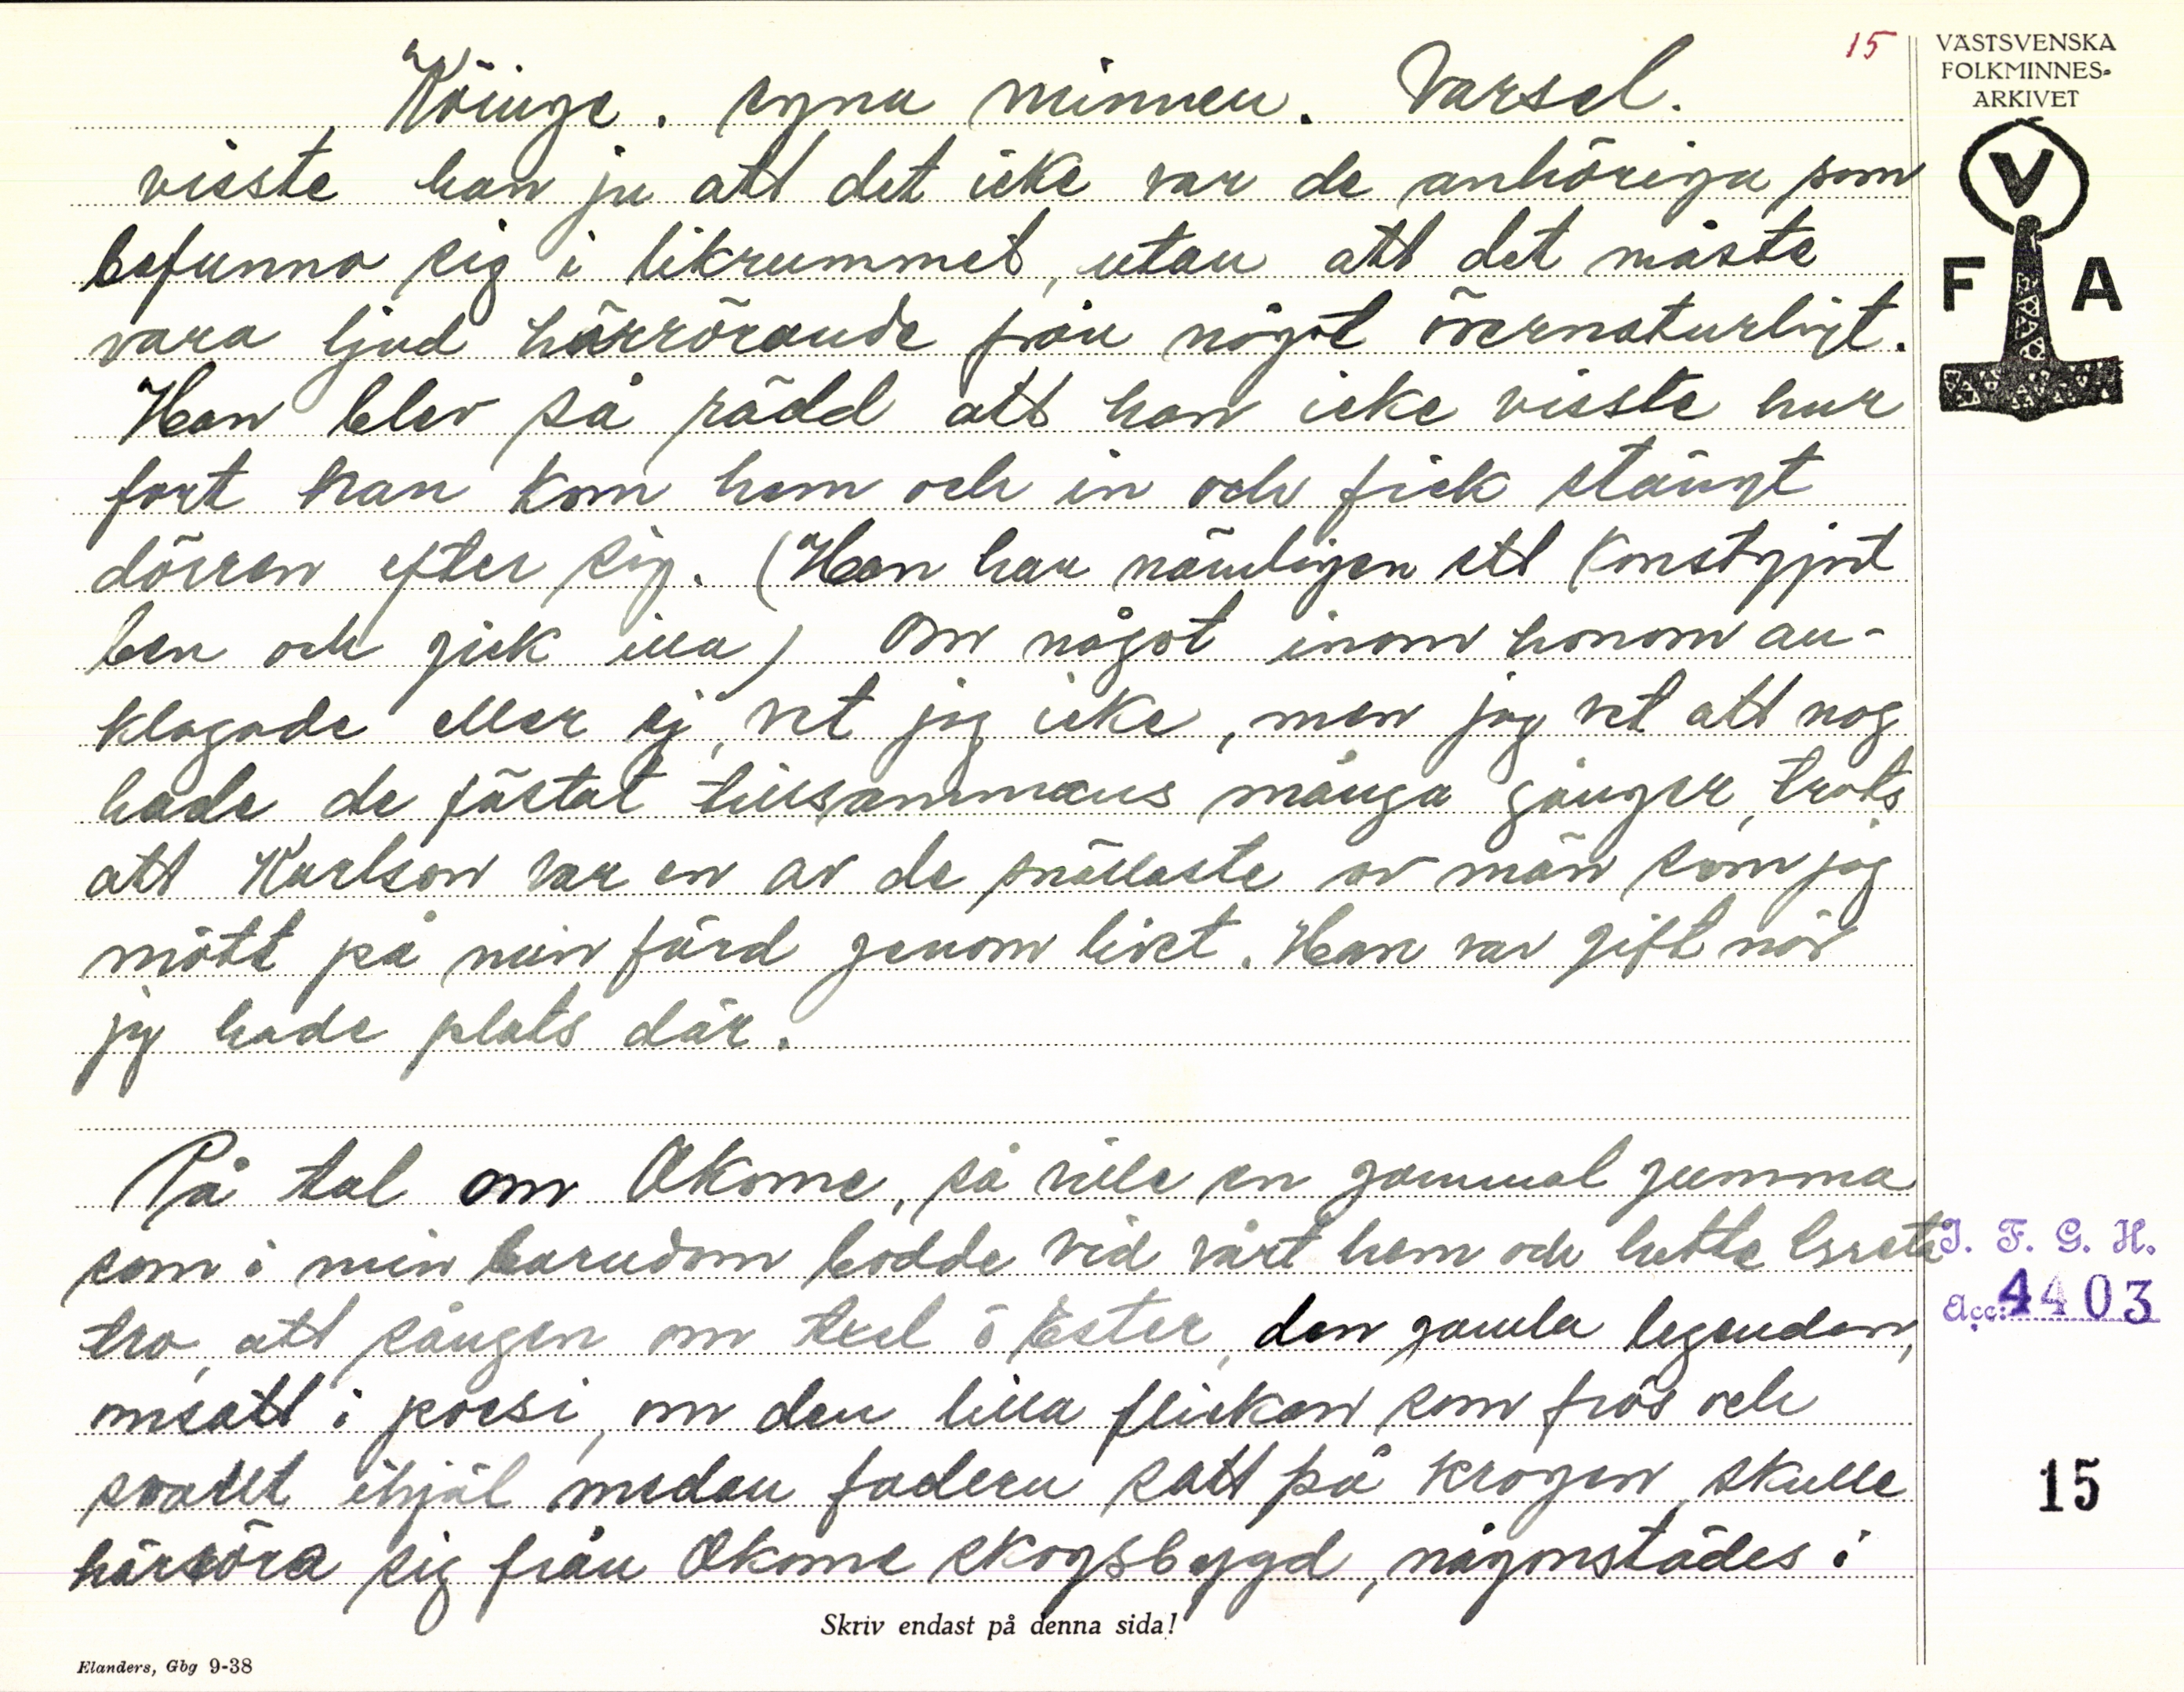 15
VÄSTSVENSKA
FOLKMINNES-
ARKIVET
V
F A
Köinge. egna minnen. Varsel.
visste han ju att det icke var de anhöriga som
befunno sig i likrummet, utan att det måste
vara ljud härrörande från något övernaturligt.
Han blev så rädd att han icke visste hur
fort han kom hem och in och fick stängt
dörren efter sig. (Han har nämligen ett konstgjort
ben och gick illa) Om något inom honom an-
klagade eller ej, vet jag icke, men jag vet att nog
hade de fästat tillsammans många gånger, trots
att Karlson var en av de snällaste av män som jag
mött på min färd genom livet. Han var gift när
jag hade plats där.
På tal om Okome, så ville en gammal gumma
som i min barndom bodde vid vårt hem och hette
tro, att sången om Axel ö Ester, den gamla legenden,
omsatt i poesi, om den lilla flickan som frös och
svalt ihjäl medan fadern satt på krogen, skulle
härröra sig från Okome skogsbygd, någonstädes i
I. F. G. H.
Acc: 4403
15
Skriv endast på denna sida!
Elanders, Gbg 9-38